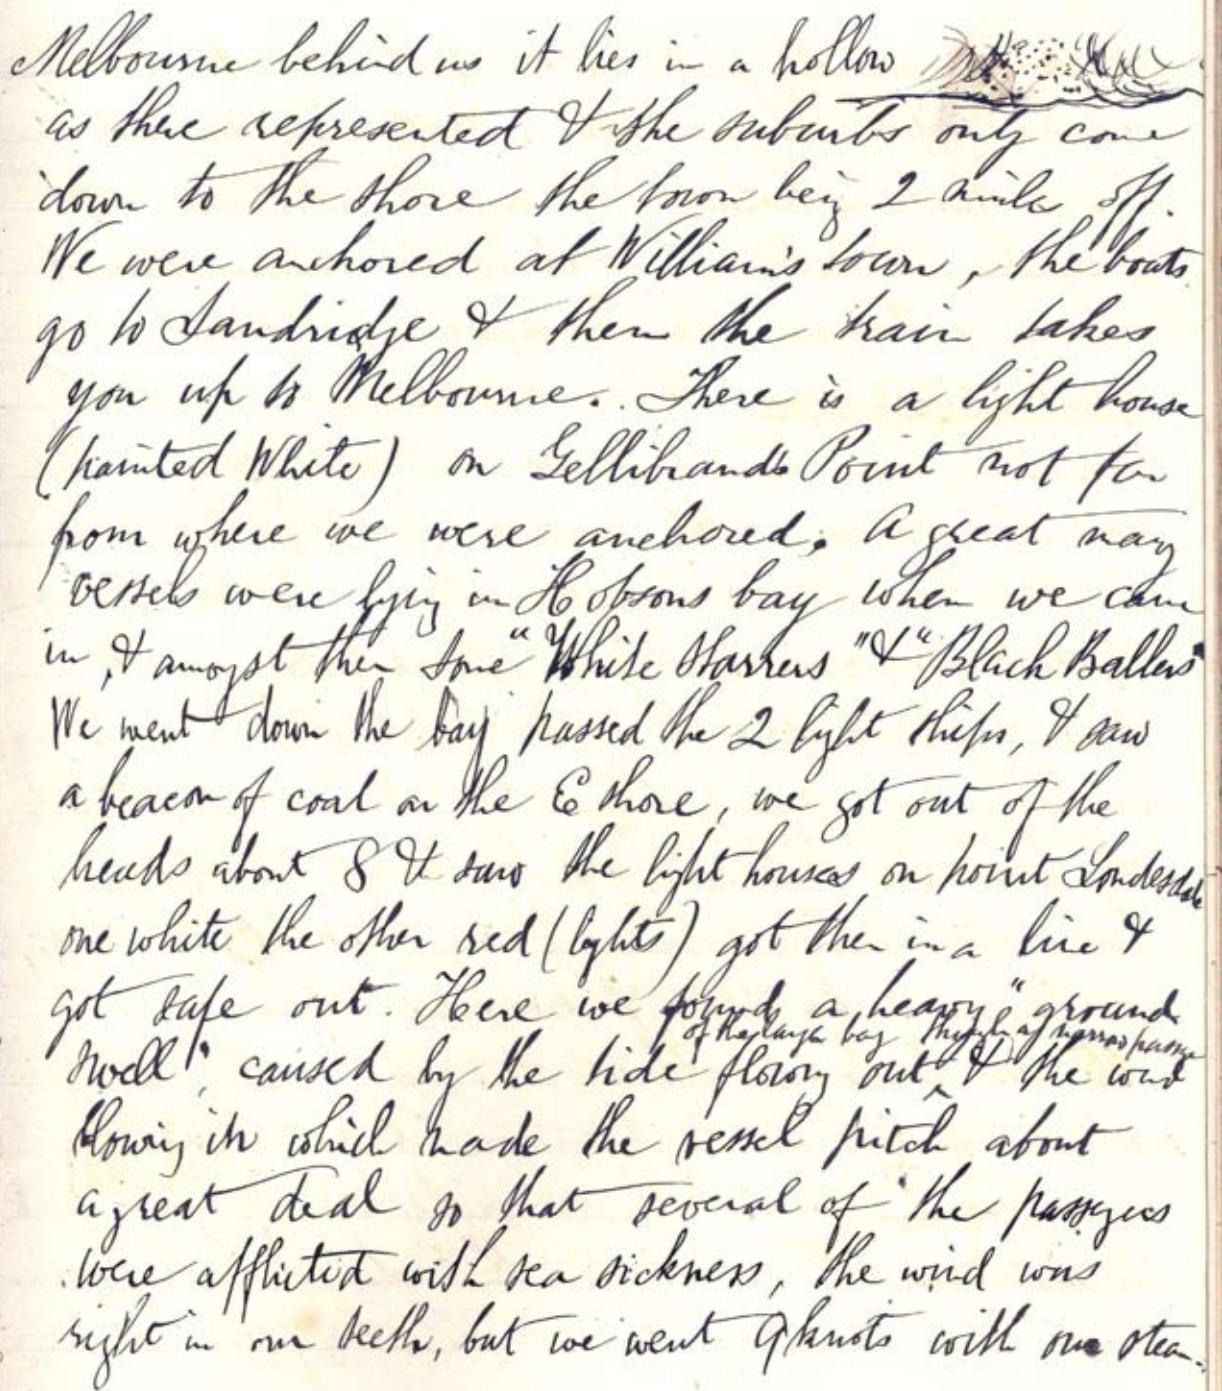 Melbourne behind us it lies in a hollow
as there represented & the suburbs only come
down to the shore the town being 2 miles off.
We were anchored at William's town, the boats
go to Sandridge & then the train takes
you up to Melbourne. There is a light house
(painted White) on Gellibrands Point not far
from where we were anchored. A great many
vessels were lying in Hobsons bay when we came
in, & amongst them some "White Starrers" & "Black Ballers"
We went down the bay passed the 2 light ships, & saw
a beacon of coal on the E shore, we got out of the
heads about 8 & saw the light houses on point Londesdale
one white the other red (lights) got them in a line &
got safe out. Here we found a heavy "ground
of the large bay through a narrow passage
swell", caused by the tide flowing out ^ & the wind
blowing in which made the vessel pitch about
a great deal so that several of the passengers
were afflicted with sea sickness, the wind was
right in our teeth, but we went 9 knots with our steam.